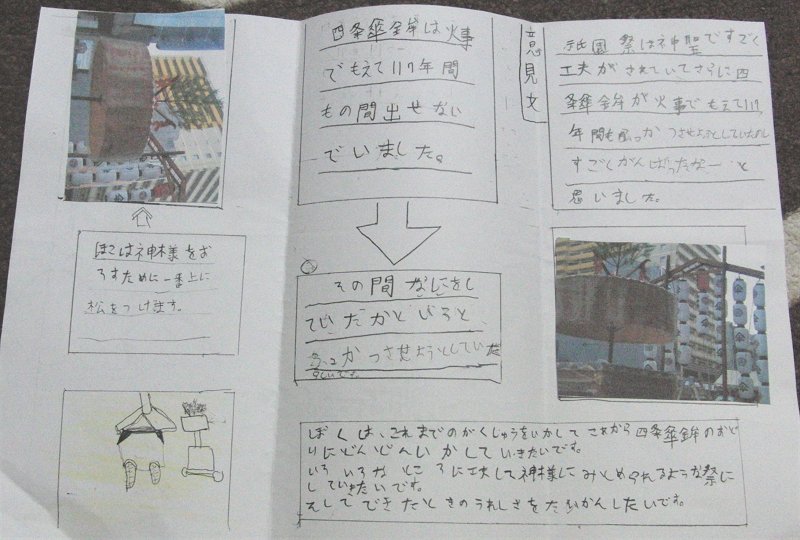 ほこは神様をお
ろすために一番上に
松をつけます。
四条傘鉾は火事
でもえて117年間
もの間出せない
でいました。
その間なにをし
ていたかというと、
ふっかつさせようとしていた
そうです。
意見文
祇園祭は神聖ですごく
工夫がされていてさらに四
条傘鉾が火事でもえて117
年間もふっかつさせようとしていたのは
すごくがんばったなーと
思いました。
ぼくは、これまでのがくしゅうをいかしてこれから四条傘鉾のおど
りにどんどんいかしていきたいです。
いろいろなところに工夫して神様にみとめられるような祭に
していきたいです。
そしてできたときのうれしさをたいかんしたいです。